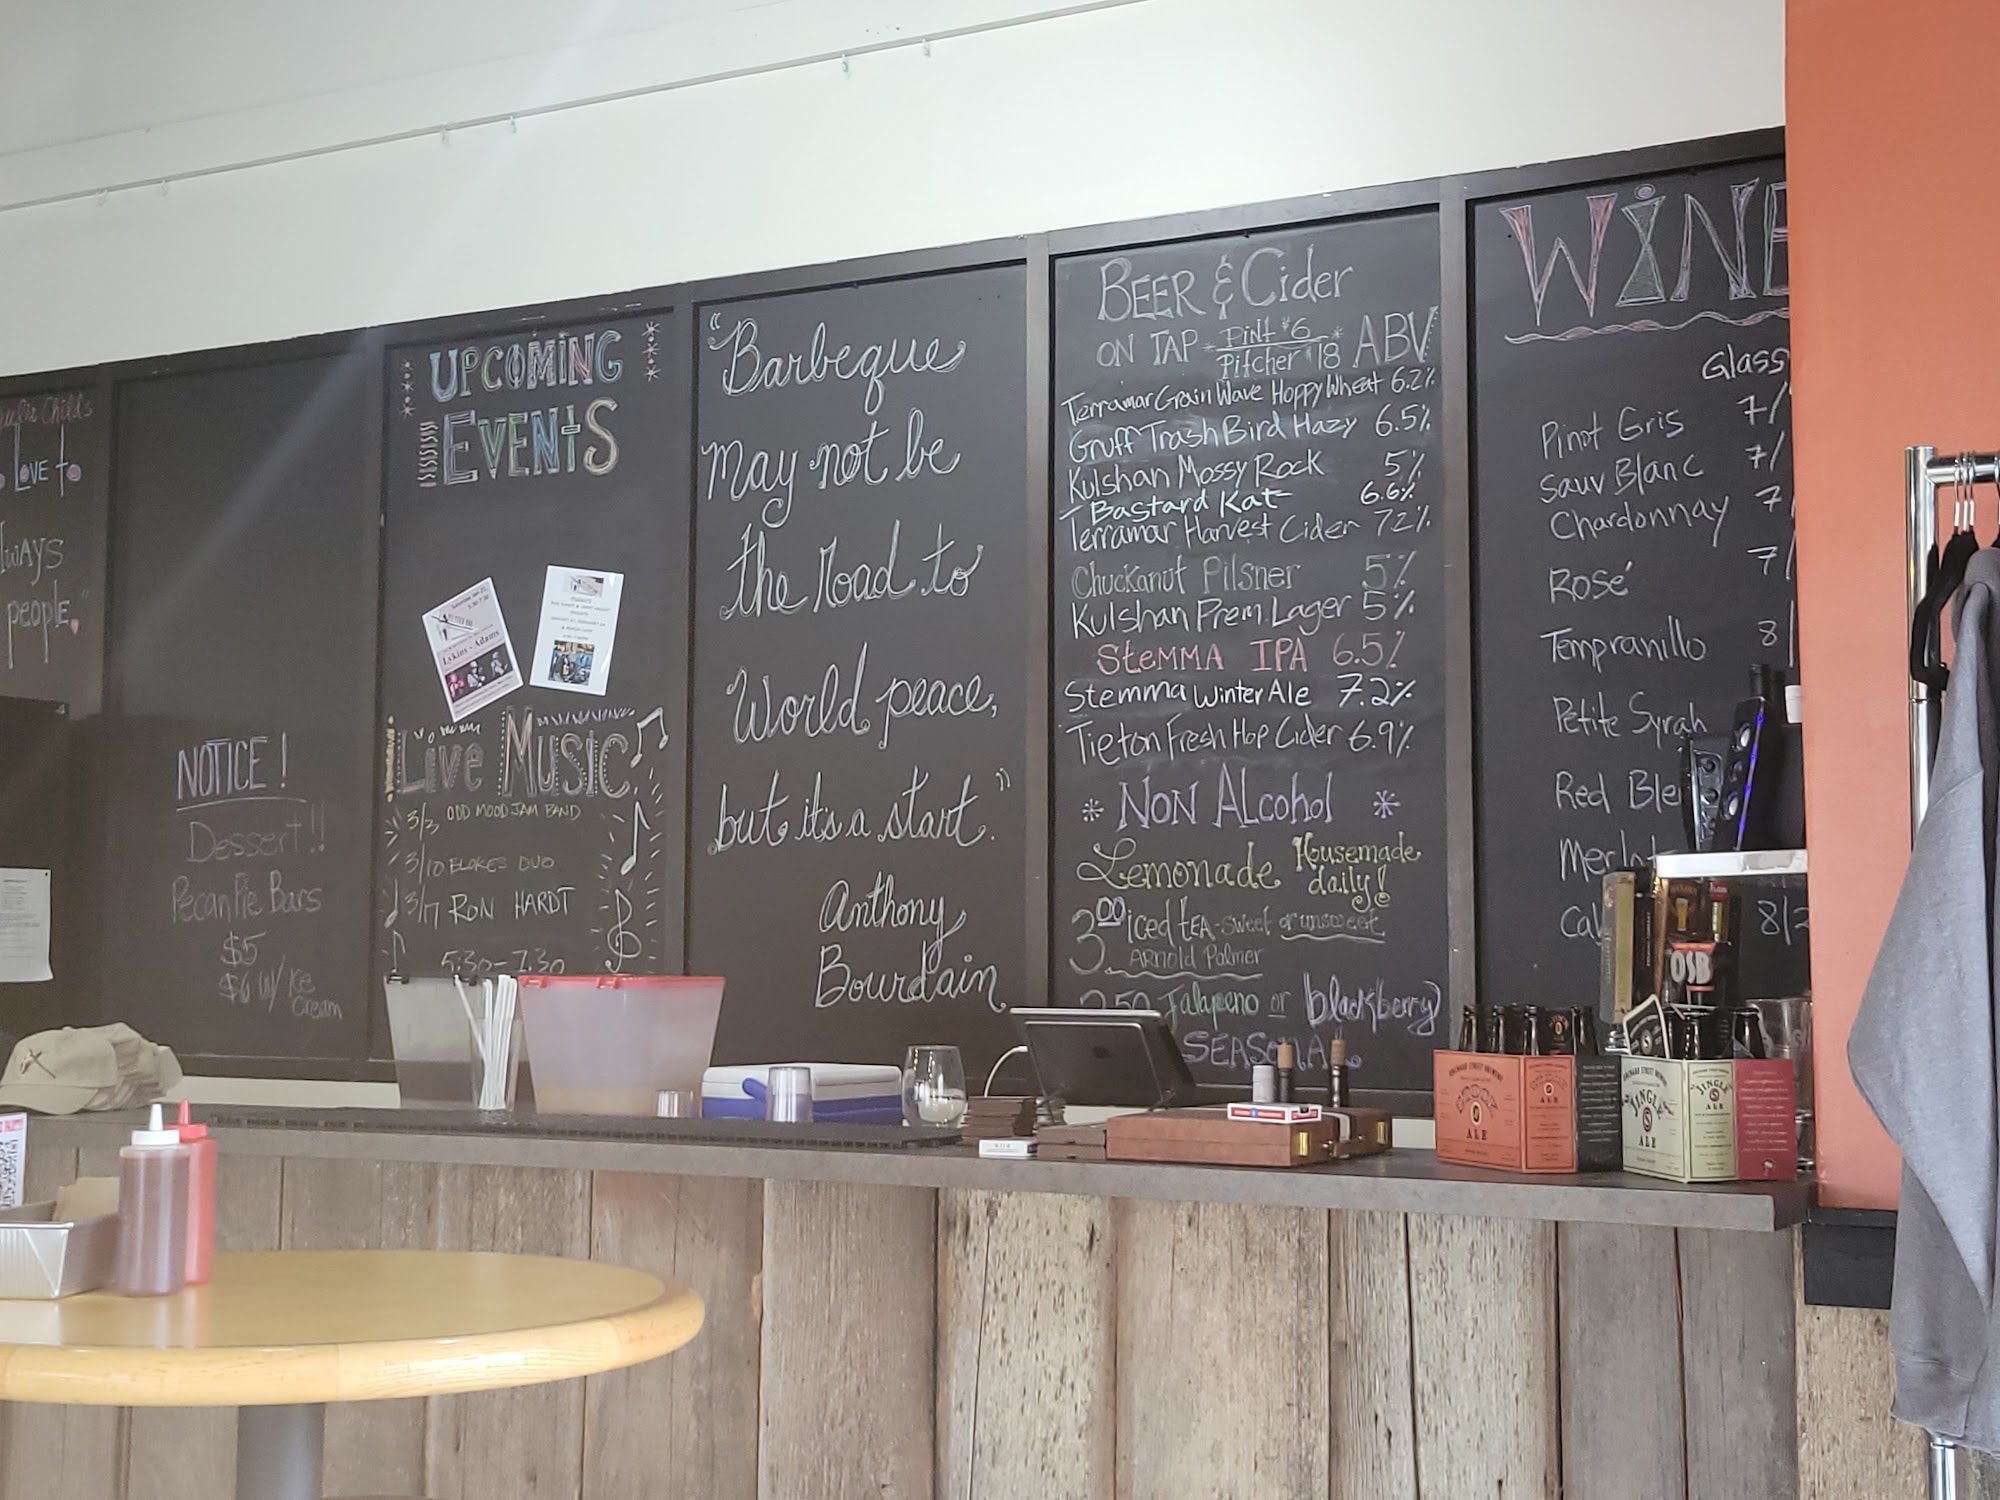 Child's
Love to
people."
NOTICE!
Dessert!!
Pecan Pie Bars
$5
$6 w/ Ice
Cream
UPCOMING
EVENTS
Lykins - Adams
Live Music
3/3 ODD MOOD JAM BAND
3/10 BLOKES DUO
3/17 RON HARDT
5:30-7:30
"Barbeque
may not be
the road to
World peace,
but it's a start."
Anthony
Bourdain
BEER & Cider
ON TAP Pint $6 ABV
Pitcher $18
Terramar Grain Wave Hoppy Wheat 6.2%
Gruff Trash Bird Hazy 6.5%
Kulshan Mossy Rock 5%
Bastard Kat 6.6%
Terramar Harvest Cider 7.2%
Chuckanut Pilsner 5%
Kulshan Prem. Lager 5%
Stemma IPA 6.5%
Stemma Winter Ale 7.2%
Tieton Fresh Hop Cider 6.9%
* Non Alcohol *
Lemonade Housemade
daily!
3.00 iced tea - sweet or unsweet
Arnold Palmer
3.50 Jalapeno or blackberry
SEASONAL
WINE
Glass
Pinot Gris 7/
Sauv Blanc 7/
Chardonnay 7
Rosé 7/
Tempranillo 8/
Petite Syrah
Red Ble
Merlot
Ca 8/2
OSB
ALE
JINGLE
ALE